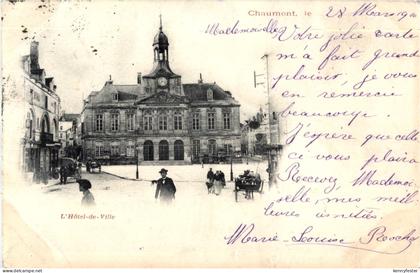 Chaumont, le 28 Mars 1901
Mademoiselle,
Votre jolie carte
m'a fait grand
plaisir, je vous
en remercie
beaucoup.
J'espère que celle
ci vous plaira
Recevez Mademoi-
selle, mes meil-
leures amitiés.
Marie-Louise
L'Hôtel-de-Ville
kennyfester